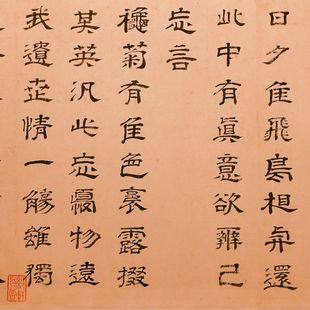 日夕佳飛鳥相與還
此中有眞意欲辯已
忘言
龝菊有佳色裛露掇
其英汎此忘憂物遠
我遺世情一觴雖獨